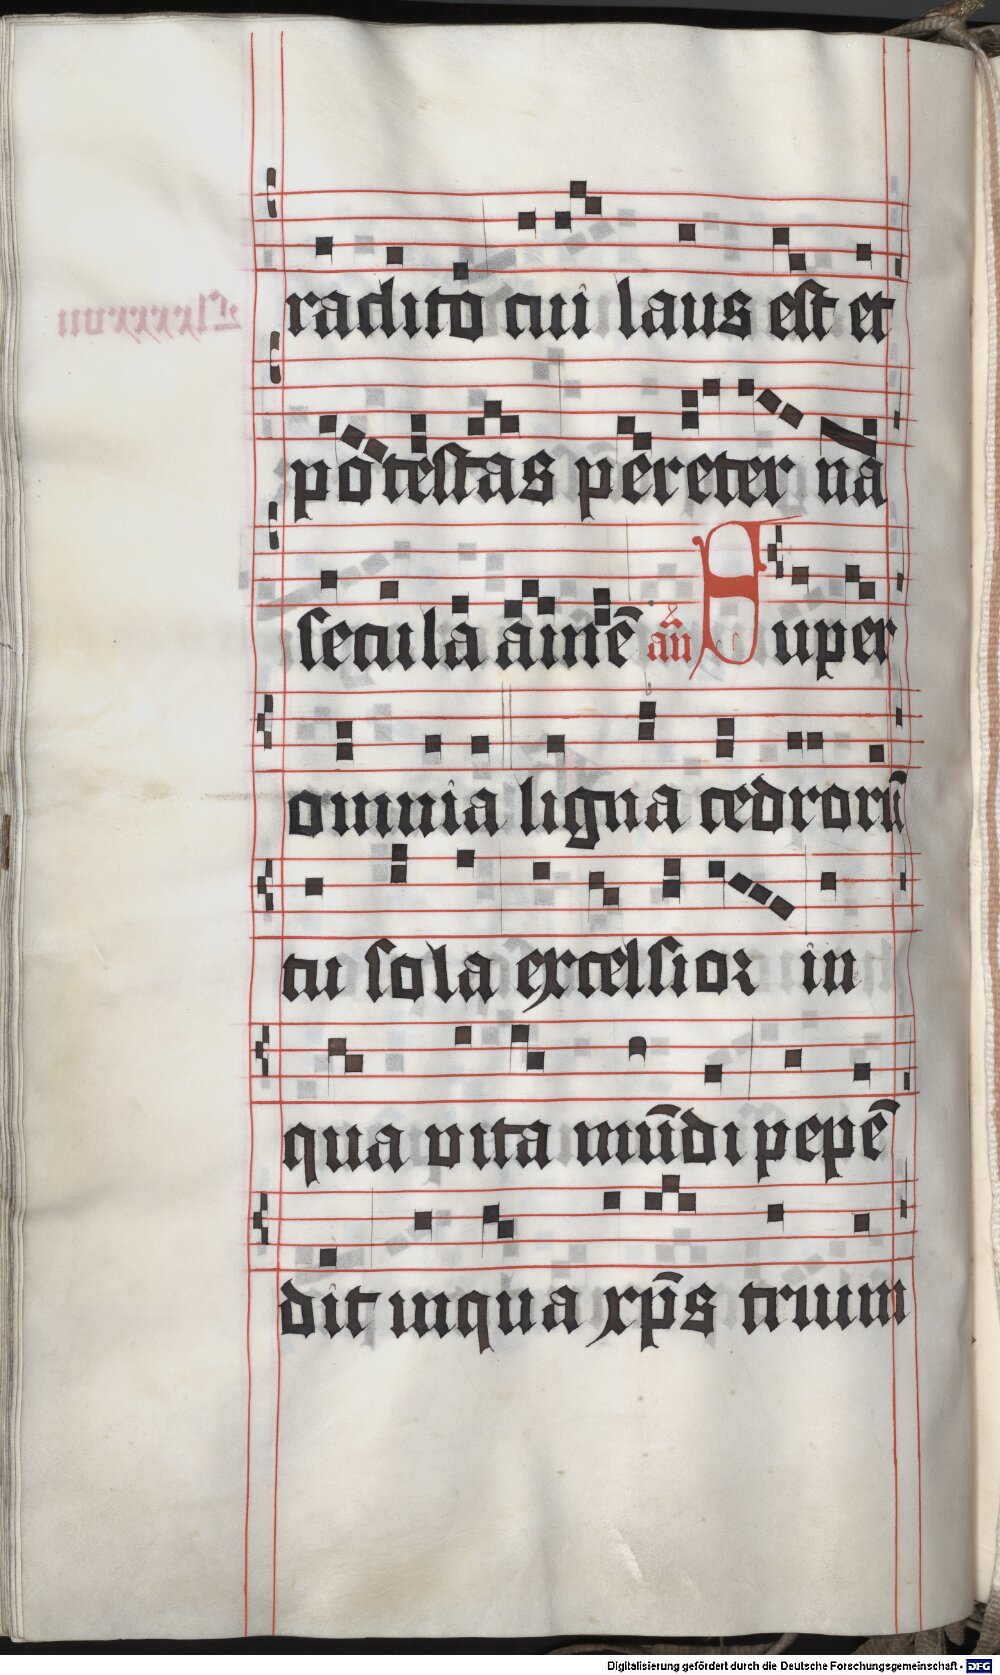 radito cui laus est et
potestas per eter na
secula amē añ Super
omnia ligna cedrorū
tu sola excelsior in
qua vita mūdi pepē
dit in qua xp̄s trium
Digitalisierung gefördert durch die Deutsche Forschungsgemeinschaft - DFG